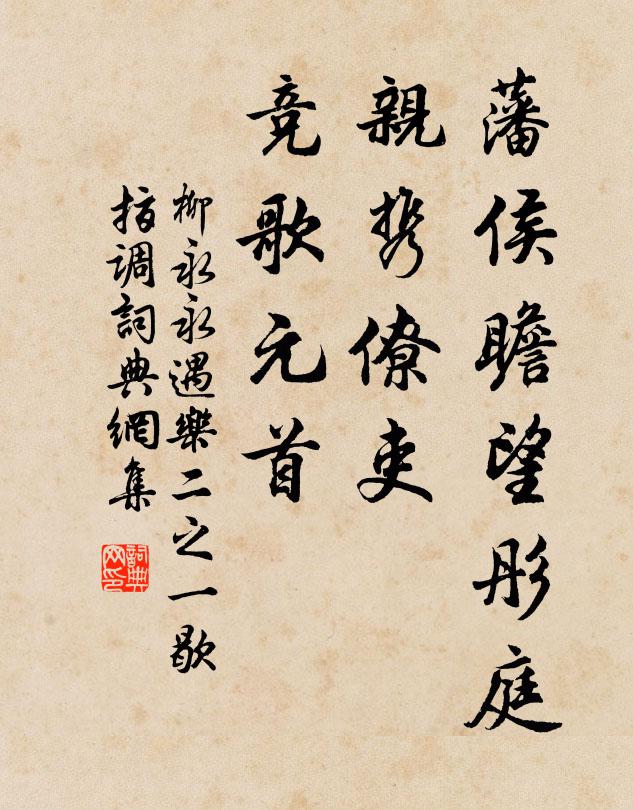 藩侯瞻望彤庭
親携僚吏
竞歌元首
柳永永遇樂二之一歇
指調詞典網集
詞典
网印